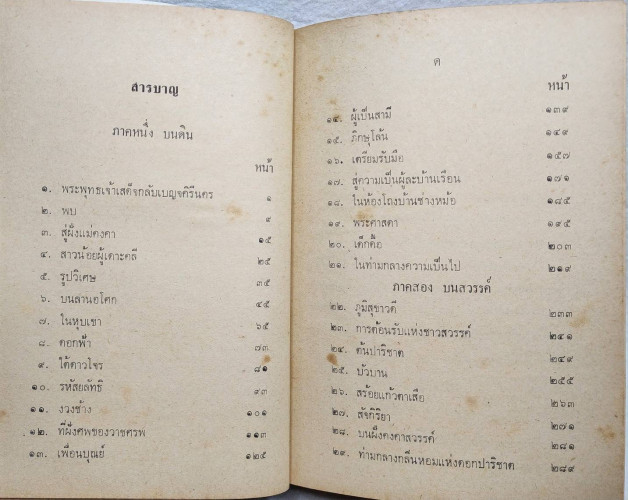 สารบาญ
ภาคหนึ่ง บนดิน
หน้า
๑. พระพุทธเจ้าเสด็จกลับเบญจคิรีนคร ๑
๒. พบ ๙
๓. สู่ฝั่งแม่คงคา ๑๕
๔. สาวน้อยผู้เดาะคลี ๒๕
๕. รูปวิเศษ ๓๕
๖. บนลานอโศก ๔๕
๗. ในหุบเขา ๖๕
๘. ดอกฟ้า ๗๓
๙. ใต้ดาวโจร ๘๑
๑๐. รหัสยลัทธิ ๙๓
๑๑. งวงช้าง ๑๐๑
๑๒. ที่ฝังศพของวาชศรพ ๑๑๓
๑๓. เพื่อนบุณย์ ๑๒๕
ค
หน้า
๑๔. ผู้เป็นสามี ๑๓๙
๑๕. ภิกษุโล้น ๑๔๙
๑๖. เตรียมรับมือ ๑๕๗
๑๗. สู่ความเป็นผู้ละบ้านเรือน ๑๗๑
๑๘. ในห้องโถงบ้านช่างหม้อ ๑๘๕
๑๙. พระศาสดา ๑๙๕
๒๐. เด็กดื้อ ๒๐๓
๒๑. ในท่ามกลางความเป็นไป ๒๑๙
ภาคสอง บนสวรรค์
๒๒. ภูมิสุขาวดี ๒๓๓
๒๓. การต้อนรับแห่งชาวสวรรค์ ๒๔๑
๒๔. ต้นปาริชาต ๒๔๙
๒๕. บัวบาน ๒๕๕
๒๖. สร้อยแก้วตาเสือ ๒๖๓
๒๗. สัจกิริยา ๒๗๑
๒๘. บนฝั่งคงคาสวรรค์ ๒๘๑
๒๙. ท่ามกลางกลิ่นหอมแห่งดอกปาริชาต ๒๘๙